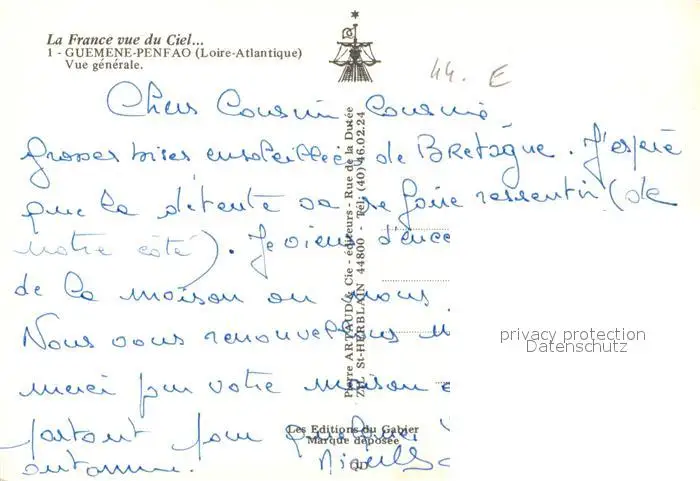 La France vue du Ciel...
1 - GUEMENE-PENFAO (Loire-Atlantique)
Vue générale.
44. E
Chers Cousin Cousine
Grosses bises ensoleillées de BRetagne. J'espère
que la détente va se faire ressentir (de
notre côté). Je viens d'ence
de la maison où nous
Nous vous renouvellons
merci pour votre maison
partout pour quelques
automne.
Pierre ARTAUD & Cie - éditeurs - Rue de la Dutée
Z.I. St-HERBLAIN 44800 - Tél: (40) 46.02.24
Les Editions du Gabier
Marque déposée
privacy protection
Datenschutz